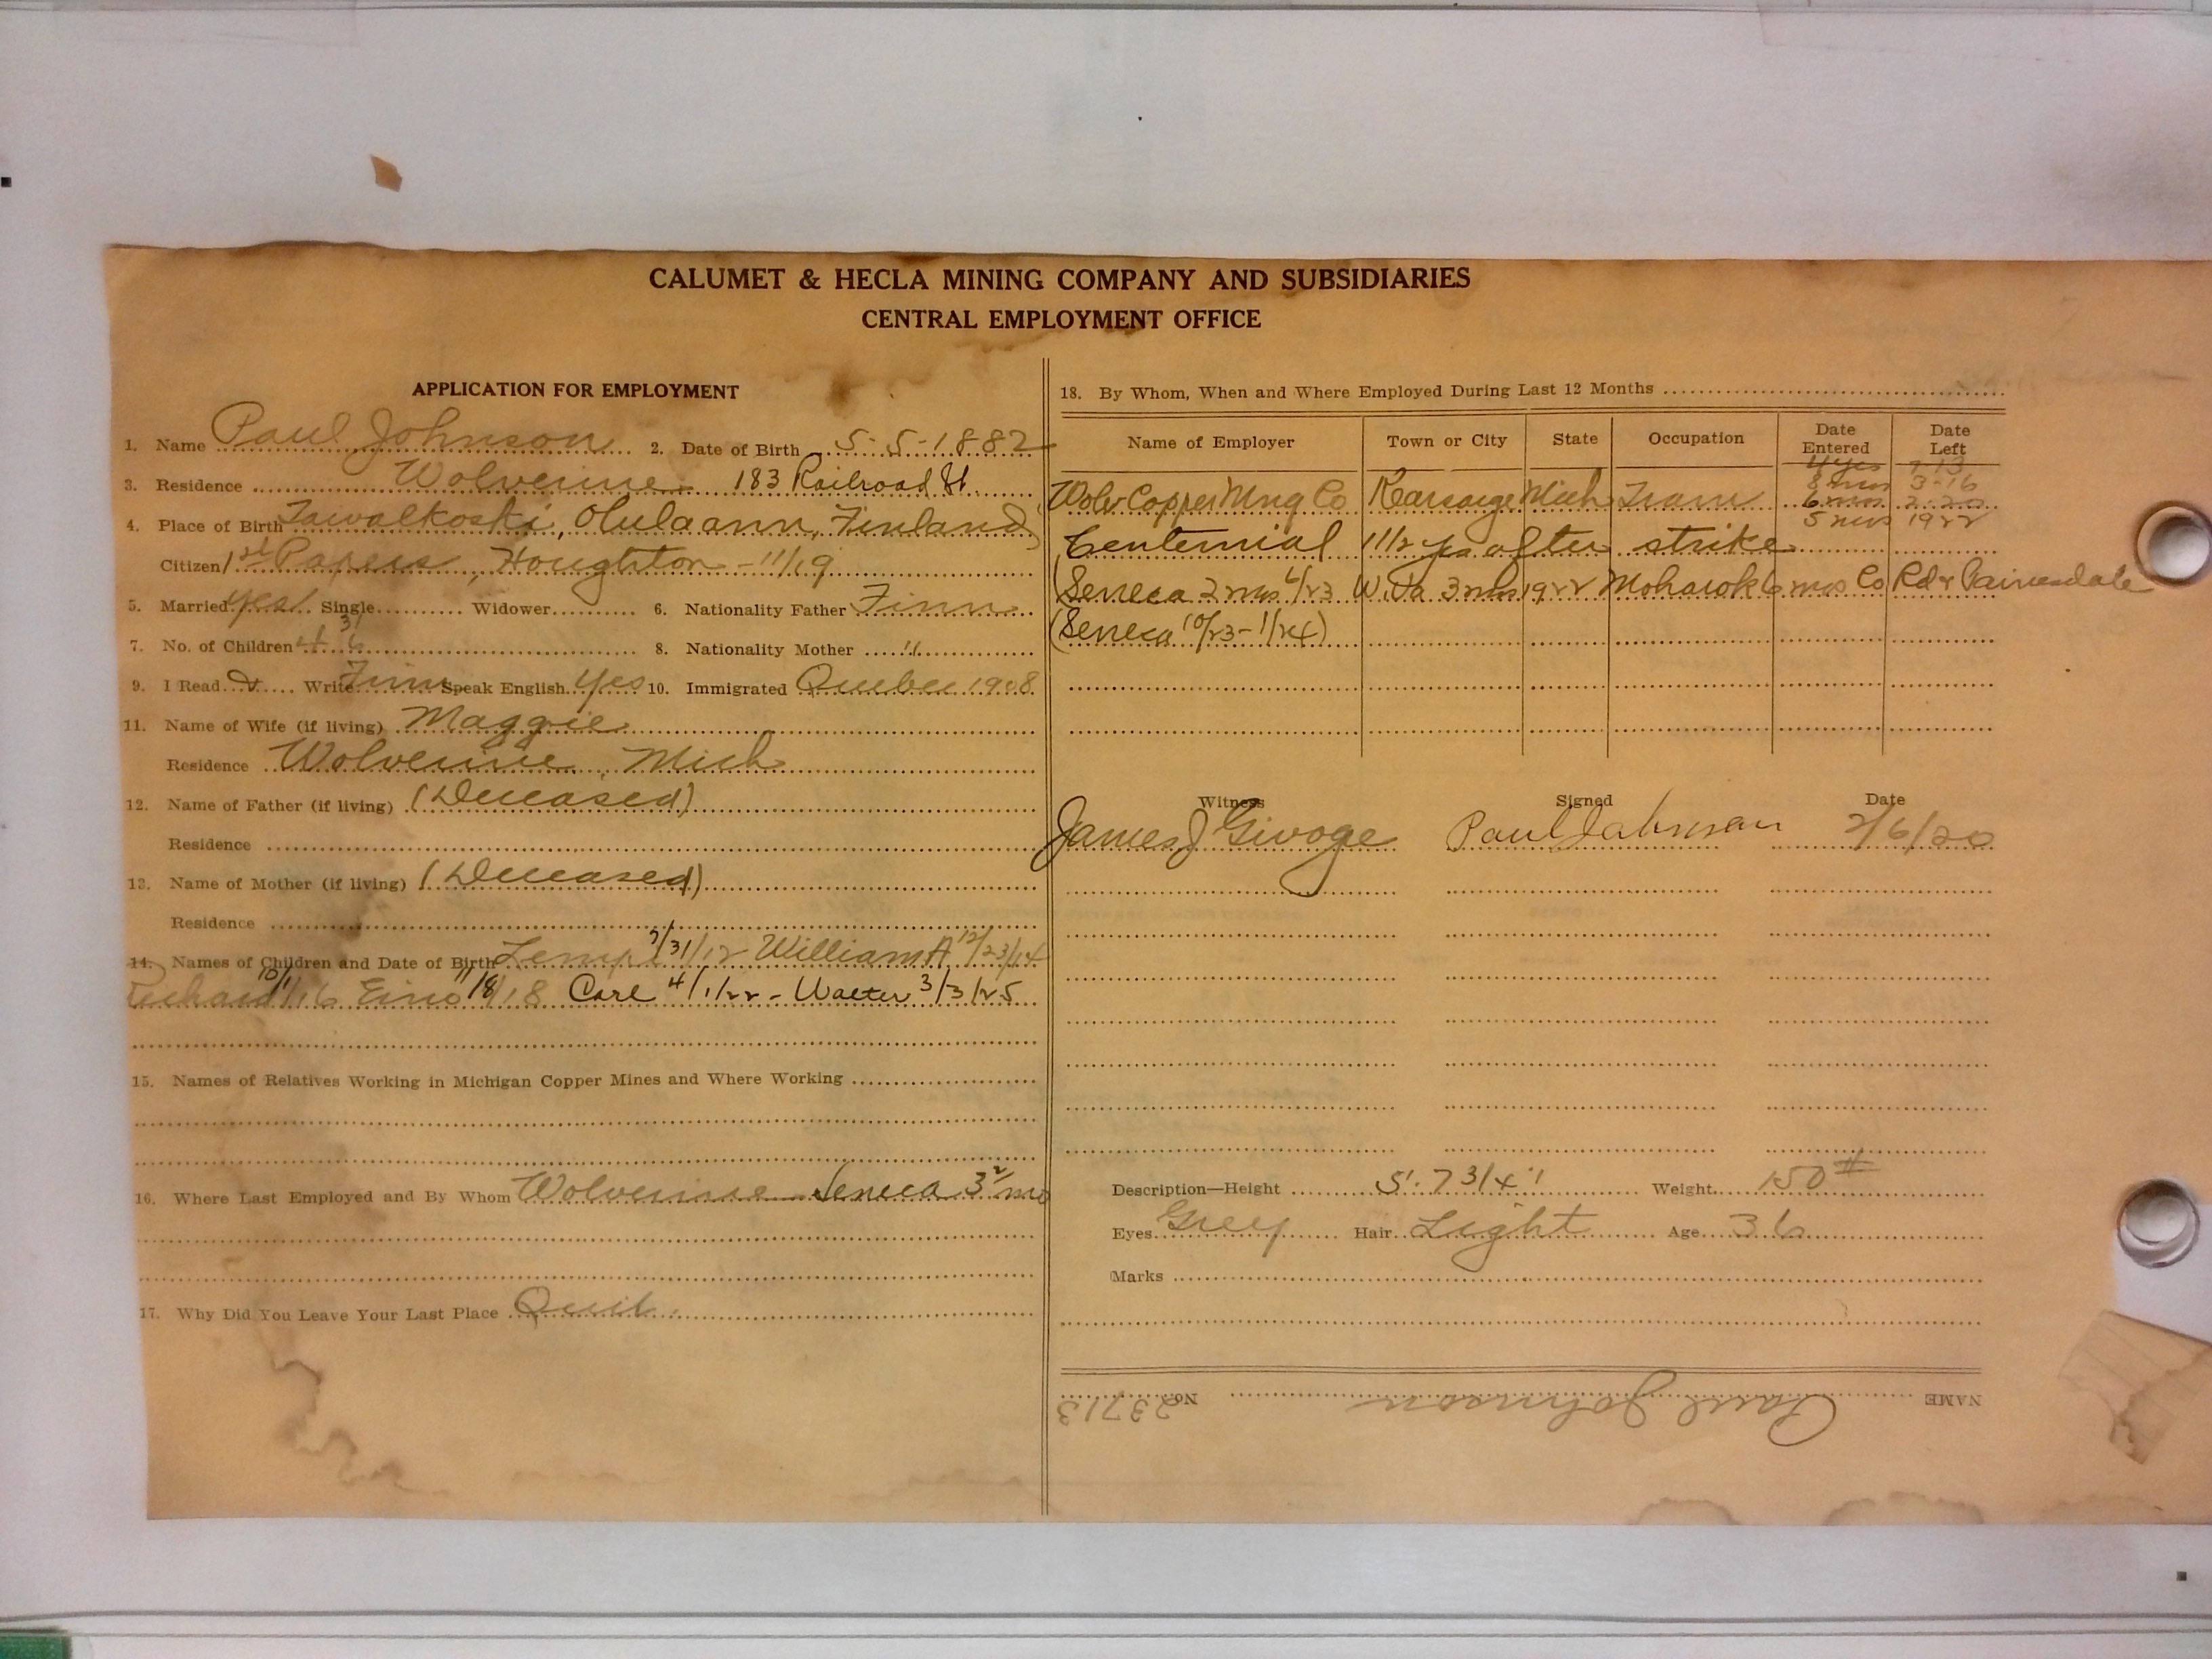 CALUMET & HECLA MINING COMPANY AND SUBSIDIARIES
CENTRAL EMPLOYMENT OFFICE
APPLICATION FOR EMPLOYMENT
1. Name Paul Johnson 2. Date of Birth 5-5-1882
3. Residence Wolverine 183 Railroad St.
4. Place of Birth Taivalkoski, Olulaann, Finland
Citizen 1st Papers, Houghton - 11/19
5. Married yes Single Widower 6. Nationality Father Finn
7. No. of Children 4 6 8. Nationality Mother "
9. I Read & Write Finn Speak English Yes 10. Immigrated Quebec 1908
11. Name of Wife (if living) Maggie
Residence Wolverine, Mich
12. Name of Father (if living) (Deceased)
Residence
13. Name of Mother (if living) (Deceased)
Residence
14. Names of Children and Date of Birth Lempi 7/31/12 William A 12/23/14
Richard 10/1/16 Eino 11/8/18 Carl 4/1/22 - Walter 3/3/25
15. Names of Relatives Working in Michigan Copper Mines and Where Working
16. Where Last Employed and By Whom Wolverine Seneca 3 mo
17. Why Did You Leave Your Last Place Quit
18. By Whom, When and Where Employed During Last 12 Months
Name of Employer Town or City State Occupation Date Entered Date Left
4 yrs 7-13
8 mos 3-16
Wolv Copper Mng Co Kearsarge Mich Tram 6 mos 2-20
5 mos 1922
Centennial 1 1/2 yrs after strike
(Seneca 2 mos 6/23 W. Pa 3 mos 1922 Mohawk 6 mos Co Rd & Painesdale
(Seneca 10/23 - 1/24)
Witness Signed Date
James J Givoge Paul Johnson 2/6/20
Description—Height 5' 7 3/4" Weight 150#
Eyes Grey Hair Light Age 36
Marks
NAME Paul Johnson No. 23713